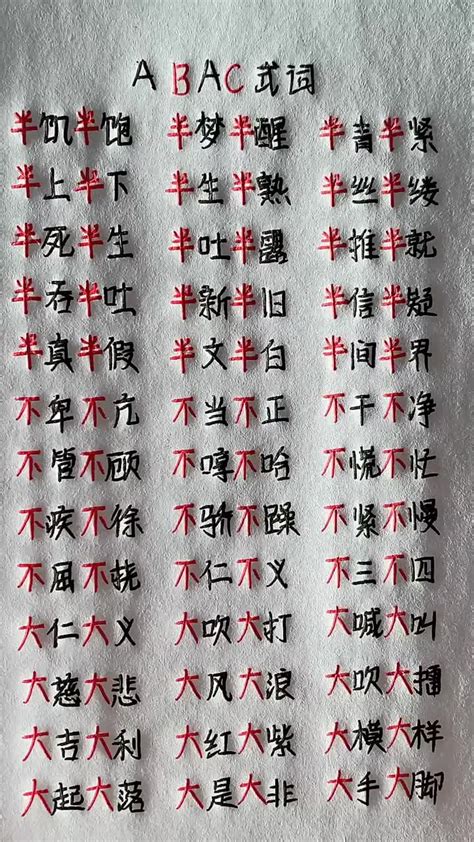 ABAC式词
半饥半饱 半梦半醒
半上半下 半生半熟 半丝半缕
半死半生 半吐半露 半推半就
半吞半吐 半新半旧 半信半疑
半真半假 半文半白 半间半界
不卑不亢 不当不正 不干不净
不管不顾 不哼不哈 不慌不忙
不疾不徐 不骄不躁 不紧不慢
不屈不挠 不仁不义 不三不四
大仁大义 大吹大打 大喊大叫
大慈大悲 大风大浪 大吹大擂
大吉大利 大红大紫 大横大样
大起大落 大是大非 大手大脚